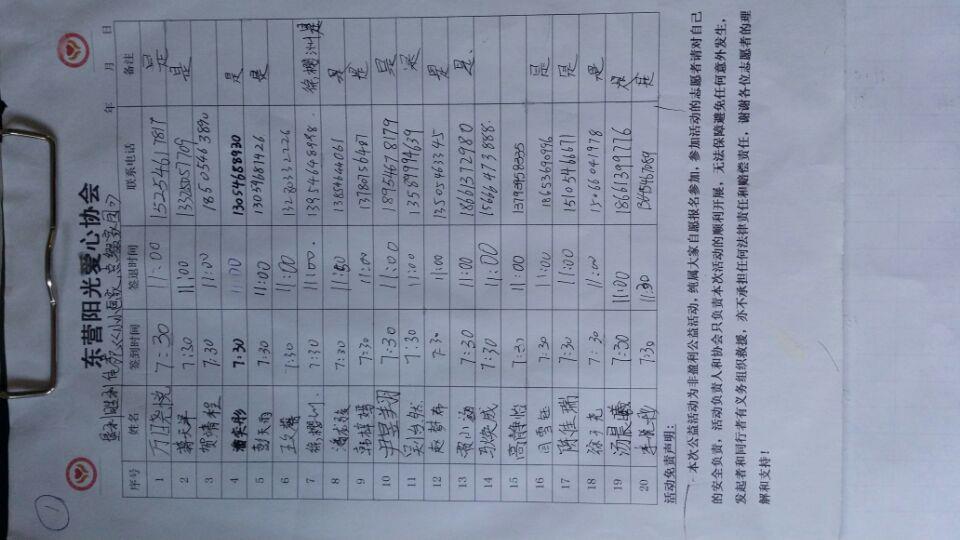 1
东营阳光爱心协会
年 月 日
序号 姓名 签到时间 签退时间 联系电话 备注
1 7:30 11:00 15254617817 是
2 7:30 11:00 13325057709 是
3 贺倩程 7:30 11:00 18605463890
4 7:30 11:00 13054688930 是
5 7:30 11:00 13039681926 是
6 7:30 11:00 13280332226
7 徐樱洲 7:30 11:00. 13954648998. 徐樱洲是
8 7:30 11:30 13854644061 是
9 7:30 11:00 是
10 尹昱翔 7:30 11:00 18954678179 是
11 7:30 11:00 13589994639 是
12 7:30 11:00 13505463345 是
13 7:30 11:00 18661372980 是.
14 马焕成 7:30 11:00 15666473888.
15 高静怡 7:30 11:00
16 7:30 11:00 18653690996 是
17 陈佳瑞 7:30 11:00 是
18 7:30 11:00 15066041978 是
19 汤晨曦 7:30 11:00 18661399776 是
20 7:30 11:30 是
活动免责声明:
本次公益活动为非盈利公益活动，纯属大家自愿报名参加，参加活动的志愿者请对自己
的安全负责，活动负责人和协会只负责本次活动的顺利开展，无法保障避免任何意外发生，
发起者和同行者有义务组织救援，亦不承担任何法律责任和赔偿责任，谢谢各位志愿者的理
解和支持！